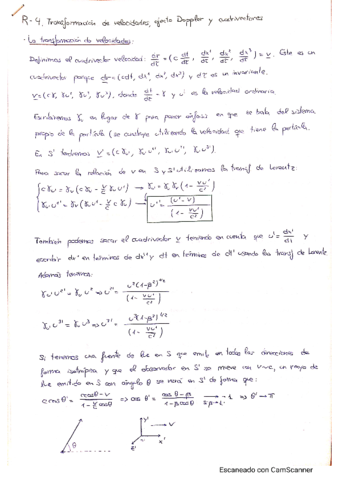 R-4, Transformación de velocidades, efecto Doppler y cuadrivectores
· La transformación de velocidades:
Definimos el cuadrivector velocidad: dr/dτ = (c dt/dτ, dx¹/dτ, dx²/dτ, dx³/dτ) = v. Este es un
cuadrivector porque dr = (cdt, dx¹, dx², dx³) y dτ es un invariante.
v = (cγ, γu¹, γu², γu³), donde dt/dτ = γ y u es la velocidad ordinaria.
Escribiremos γu en lugar de γ para poner énfasis en que se trata del sistema
propio de la partícula (se construye utilizando la velocidad que tiene la partícula.
En S' tendremos v' = (cγu', γu' u'¹, γu' u'², γu' u'³)
Para sacar la relación de v en S y S' utilizamos las transf de Lorentz:
También podemos sacar el cuadrivector v teniendo en cuenta que u' = dx'/dt' y
escribir dx' en términos de dx y dt en términos de dt' usando las transf de Lorentz
Además tenemos:
Si tenemos una fuente de luz en S que emite en todas las direcciones de
forma isotrópica y que el observador en S' se mueve con v~c, un rayo de
luz emitido en S con ángulo θ se verá en S' de forma que:
θ
→ V
Escaneado con CamScanner